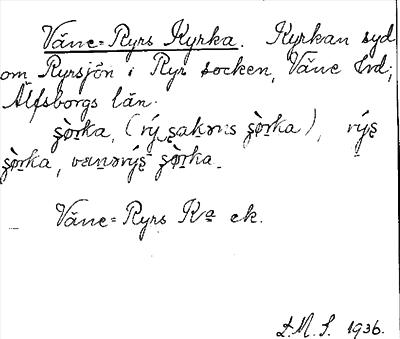 Väne-Ryrs Kyrka. Kyrkan syd
om Ryrsjön i Ryr socken, Väne hd;
Älfsborgs län.
ʂò̱rka, (rý ʂakɔns ʂò̱rka), rýʂ
ʂò̱rka, vɛnərýʂ ʂò̱rka.
Väne-Ryrs Kª ek.
D.M.S. 1936.